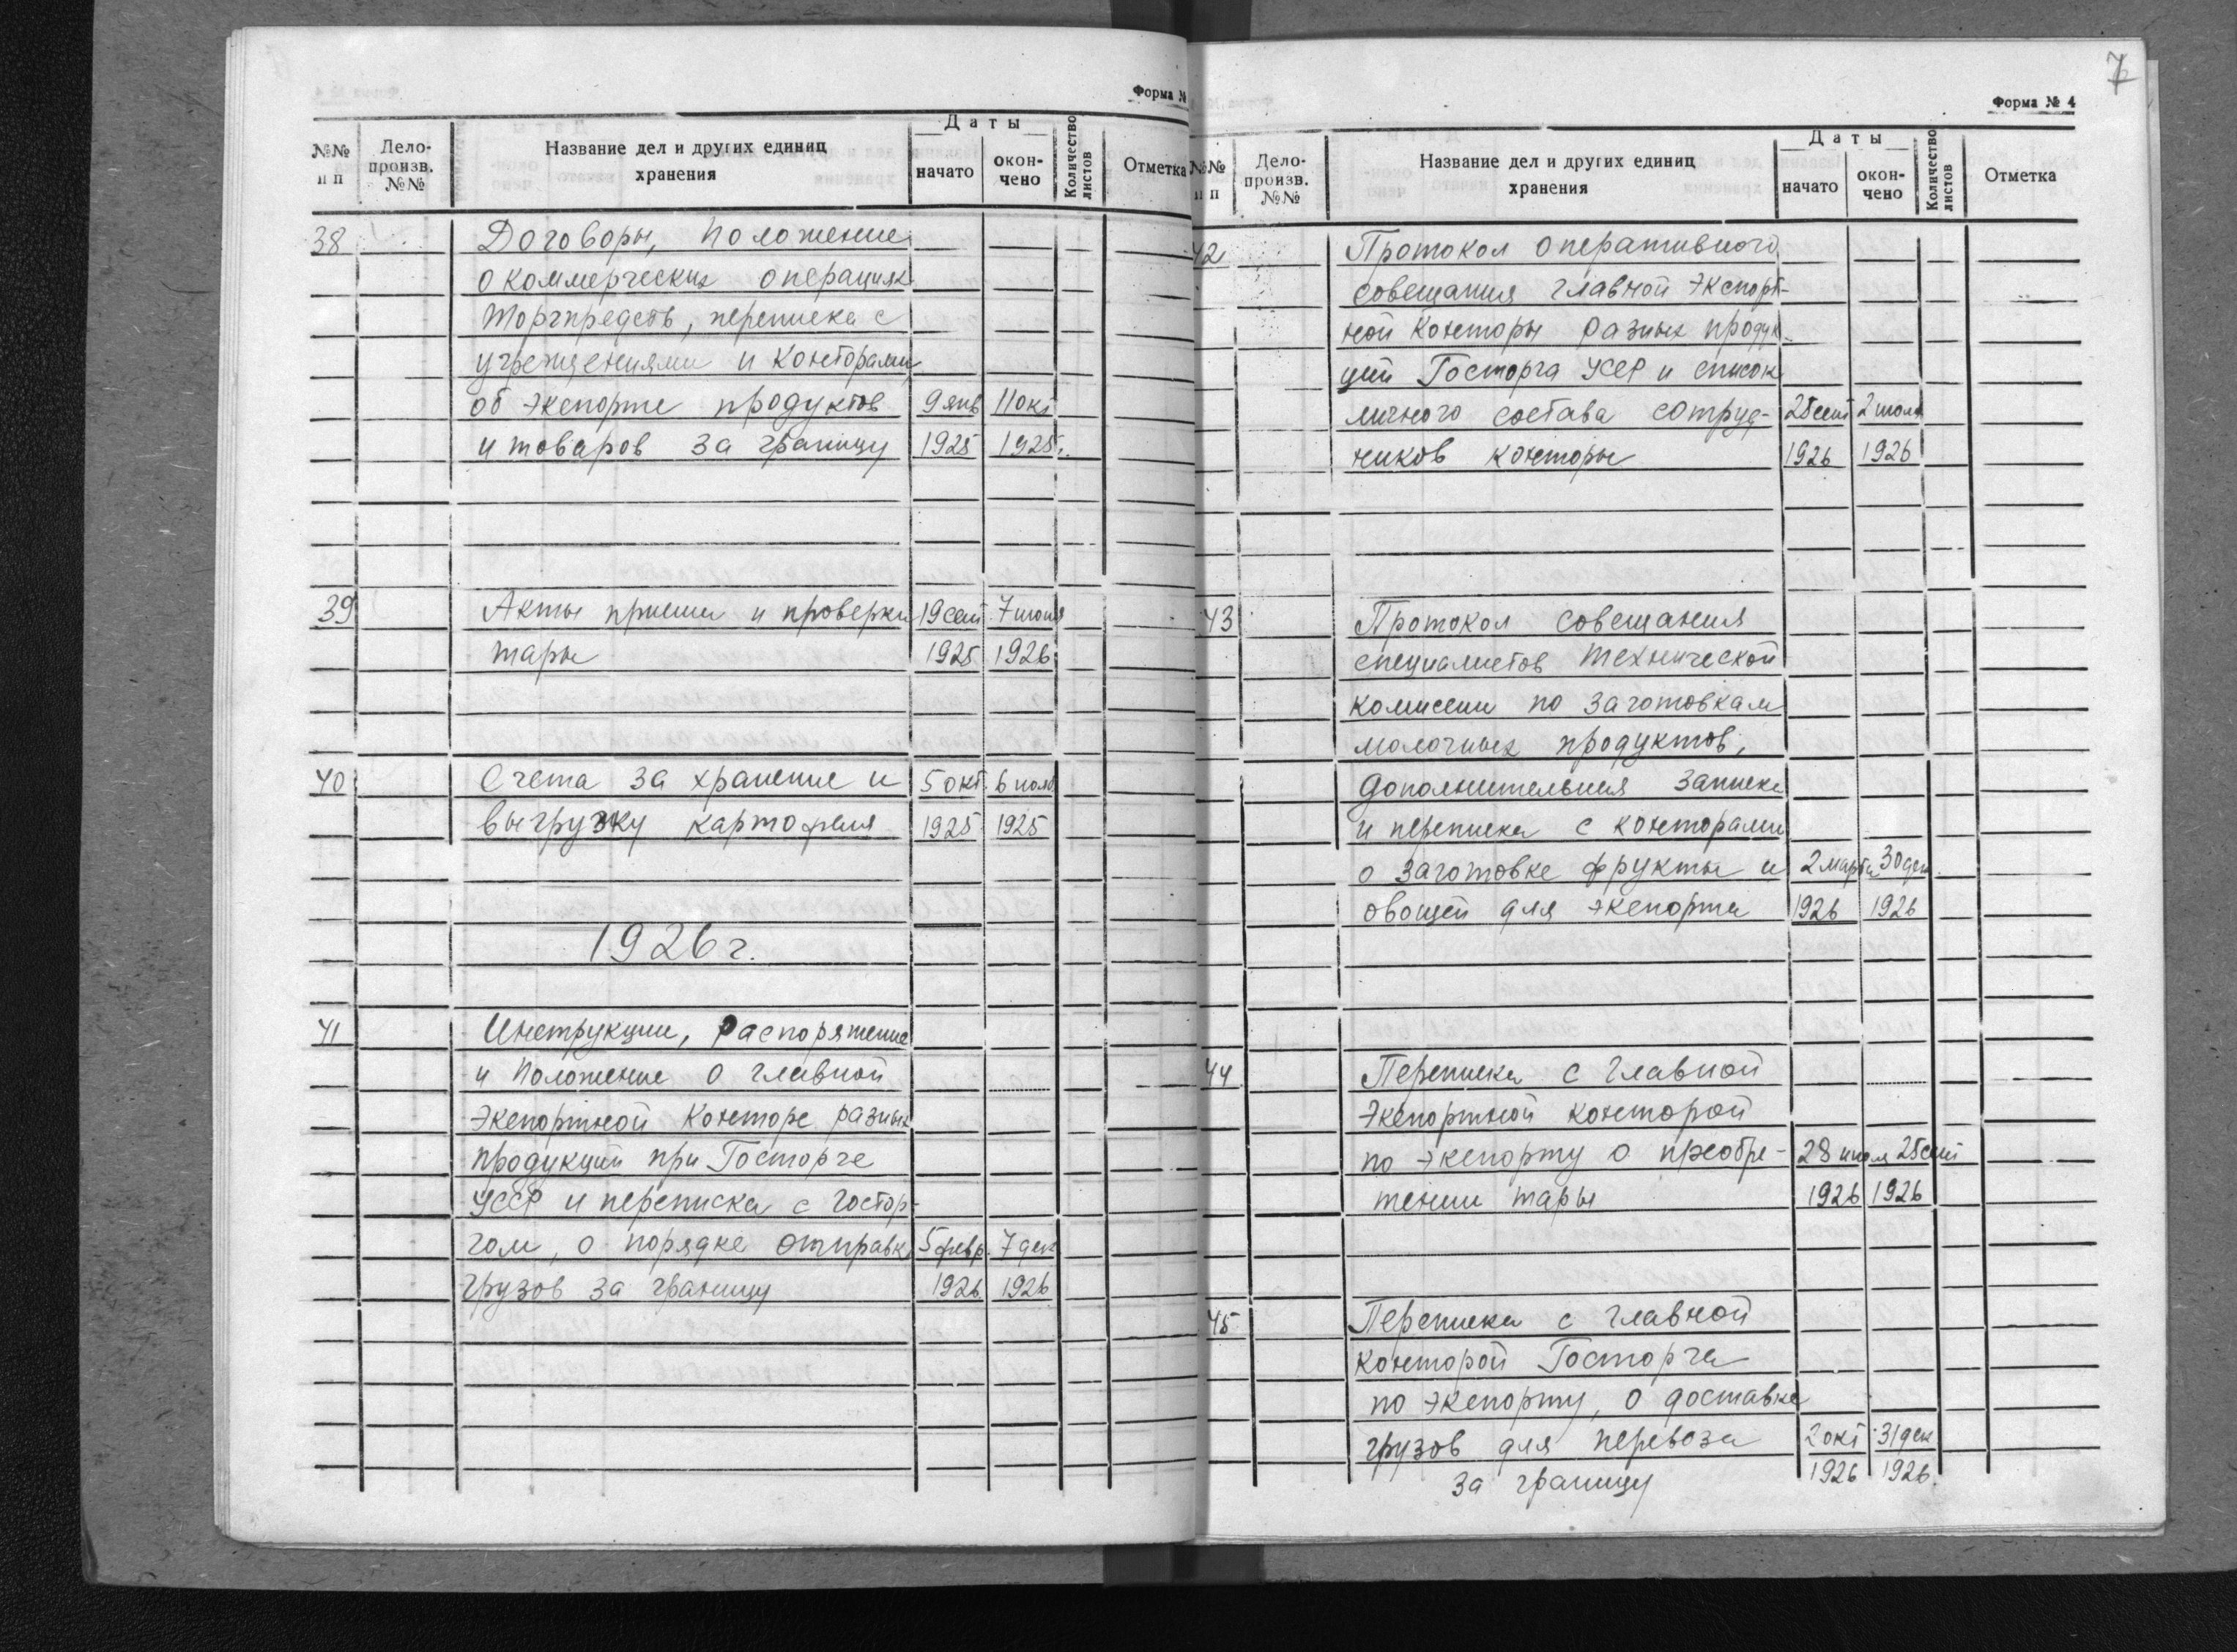 Форма №
№№ п п
Дело-произв. №№
Название дел и других единиц хранения
Даты
начато
окончено
Количество листов
Отметка
38 Договоры, Положение
о коммерческих операциях
торгпредств, переписка с
учреждениями и Конторами,
об экспорте продуктов 9 янв 11 окт
и товаров за границу 1925 1925г.
39 Акты приема и проверки 19 сент 7 июня
тары 1925 1926
40 Счета за хранение и 5 окт. 6 нояб
выгрузку картофеля 1925 1925
1926 г.
41 Инструкции, распоряжение
и Положение о главной
Экспортной Конторе разных
продукций при Госторге
УССР и переписка с Гостор-
гом, о порядке отправки 5 февр. 7 дек
грузов за границу 1926 1926
7
Форма № 4
№№ п п
Дело-произв. №№
Название дел и других единиц хранения
Даты
начато
окончено
Количество листов
Отметка
42 Протокол оперативного
совещания главной Экспорт-
ной Конторы разных продук-
ций Госторга УССР и список
личного состава сотруд- 25 сент 2 июля
ников конторы 1926 1926
43 Протокол совещания
специалистов технической
комиссии по заготовкам
молочных продуктов,
дополнительная записка
и переписка с конторами
о заготовке фрукты и 2 марта 30 дек
овощей для экспорта 1926 1926
44 Переписка с главной
Экспортной конторой
по экспорту о преобре- 28 июля 25 сент
тении тары 1926 1926
45 Переписка с главной
конторой Госторга
по экспорту, о доставке
грузов для перевоза 2 окт 31 дек
за границу 1926 1926.